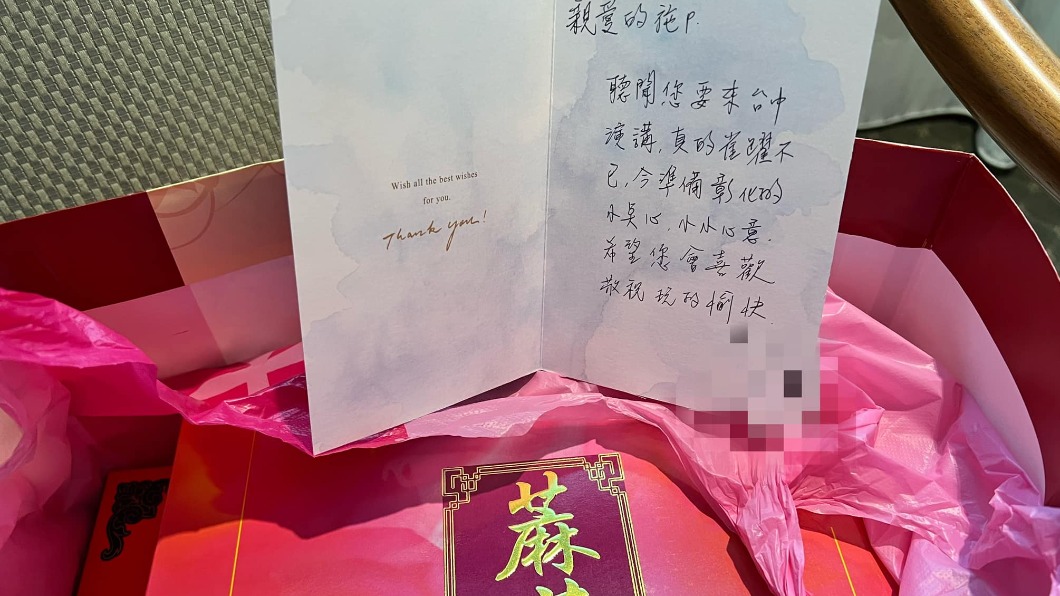 Wish all the best wishes
for you.
Thank you!
親愛的施P.
聽聞您要來台中
演講,真的雀躍不
已,今準備彰化的
小點心,小小心意.
希望您會喜歡
敬祝 玩的愉快.
蔴